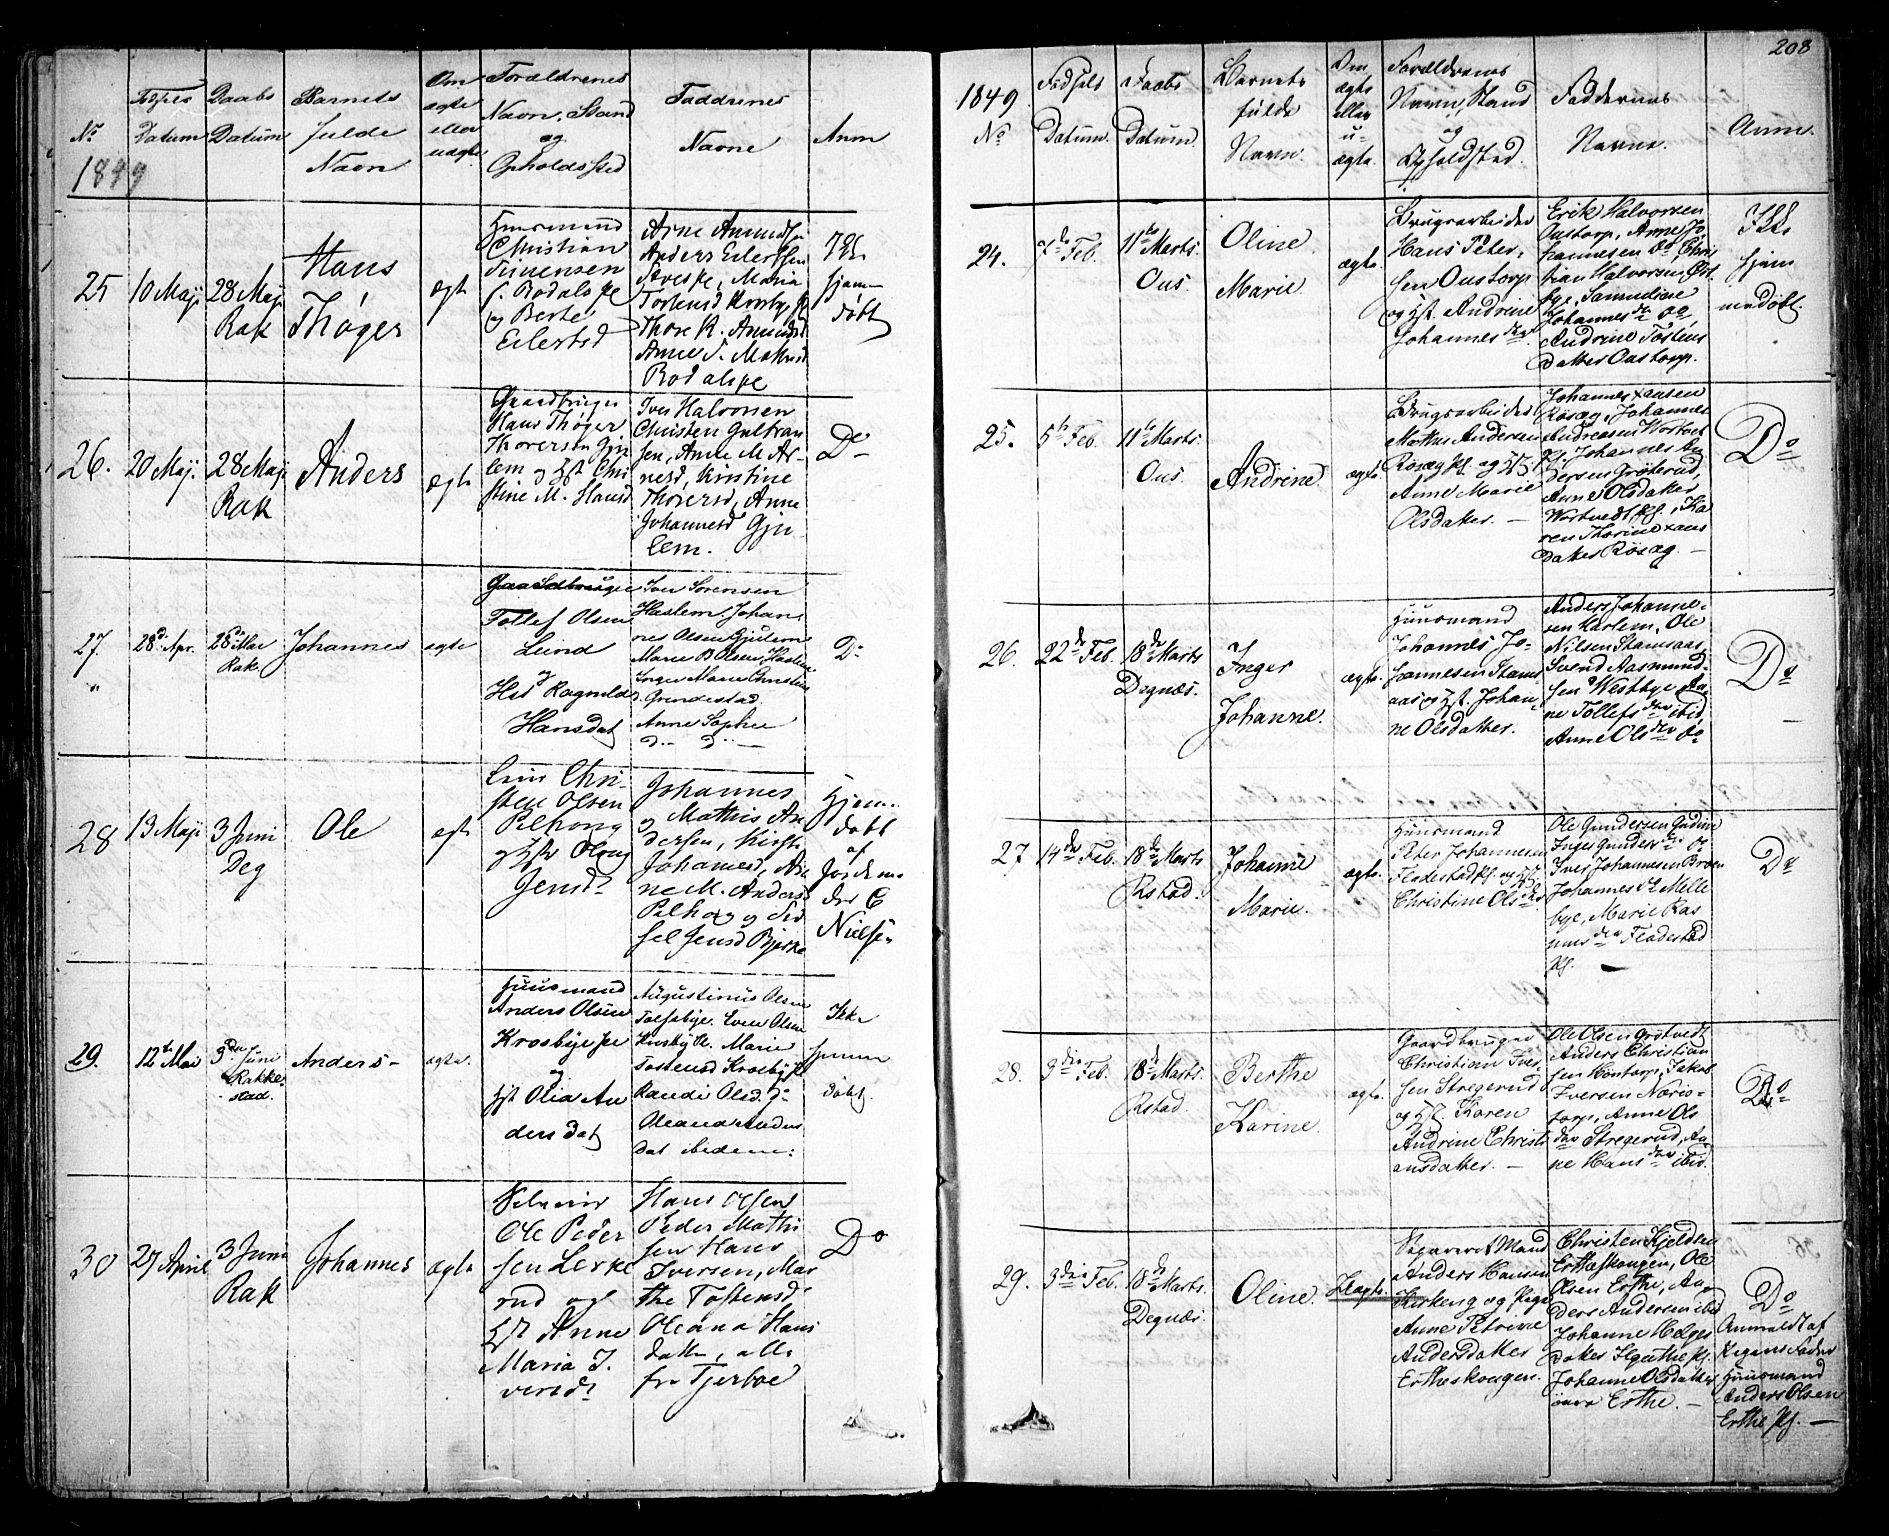 No
1849
Fødsels
Datum
Daabs
Datum
Barnets
fulde
Navn
Om
ægte
eller
uægte
Forældrenes
Navn, Stand
og
Opholdssted
Faddrenes
Navne
Anm
25
10 Maji
28 Maji
Rak
Hans
Thøger
ægte
Huusmand
Christian
f. Rodalspe
og Berte
Eilertsd
Arne Amundsen
Anders Eilertsen
Maria
Anne
Rodalspe
Ikke
hjemme
døbt
26.
20 Maji.
28 Maji
Rak
Anders
ægte
Gaardbruger
Hans Thøger
Thoresen Gju
lem og Hst Chri
stine M. Hansd
Iver Halvorsen
Christen Gulbran
sen, Anne M Ar-
nesd, Kristine
Thoresd, Anne
Johannesd Gju
lem.
Do
27
28d Apr.
28de Mai
Rak
Johannes
ægte
Gaardbruger
Tollef Olsen
Lund
og
Hst Ragnild
Hansdat
Iver Sørensen
Haslem Johan
nes Olsen
Marie B Olsen
Inger Marie Christens
Grindestad
Anne Sophie
Do
28
13 Maji
3 Juni
Deg
Ole
ægte
Chri
sten Olsen
Pilhoug
og Hst Oloug
Jensd
Johannes
og Mathis An
dersen, Kirsti
Johannesd, An
ne M. Andersd
Pilhoug og
Jensd Bjerke
Hjem-
døbt
af
Jordemo
der E
Nielsen
29.
12te Mai
3die Juni
Rakke-
stad.
Anders-
ægte.
Huusmand
Anders Olsen
Krosbye pe
og
Hst Olia An
ders Dat
Augustinus Olsen
Even Olsen
Marie
Tostensd Krosbye
Randi Olsd. do
Oleana Anders
dat ibedem:
Ikke
hjemme
døbt.
30
27 April
3 Juni
Rak
Johannes
ægte
Ole Peder
sen Lerke
rud og
Hst Anne
Maria I.
versd
Hans Olsen
Peder Mathi
sen Hans
Iversen, Mar
the Tostensd
Oleana Hans
datter, alle
fra Tjerboe
Do
208
1849
No
Fødsels
Datum.
Daabs
Datum.
Barnets
fulde
Navn.
Om
ægte
eller
u-
ægte.
Forældrenes
Navn, Stand
og
Opholdsted.
Faddernes
Navne.
Anm.
24.
7de Feb.
11te Marts.
Ous.
Oline
Marie
ægte.
Brugsarbeider
Hans Peter-
sen Oustorp
og Hst. Andrine
Johannesdat.
Erik Halvorsen
Oustorp, Arne Jo
hannesen do, Chris
tian Halvorsen,
bye, Samueline
Johannesda do
Andrine Tostens
datter Oustorp.
Ikke
hjem
medøbt.
25.
5te Feb.
11te Marts.
Ous.
Andrine
ægte.
Brugsarbeider
Mathis Andersen
Røsæg Pl. og Hst
Anne Marie
Olsdatter. —
Johannes
Røsæg, Johannes
Andreasen
Johannes An
dersen Grøterud,
Anne Olsdatter
Wortvedt Pl., Ka
ren Thorine
datter Røsæg. —
Do
26.
22de Feb.
18de Marts
Degnæs.
Inger
Johanne.
ægte.
Huusmand
Johannes Jo-
hannesen Stams
aas og Hst. Johan-
ne Olsdatter.
Anders Johanne-
sen Harlem, Ole
Nilsen Stamsaas,
Svend Aasmund-
sen Westbye, An-
ne Tollefsdtr ibid,
Anne Olsdtr do
Do
27
14de Feb.
18de Marts
Rstad.
Johanne
Marie.
ægte.
Huusmand
Peter Johannesen
Fladestad Pl. og Hst.
Christine Olsda
Ole Gundersen
Inger Gundersda do
Iver Johannesen Broen
Johannes do Melle
bye, Marie Ras
musdtr Fladestad
Pl.
Do
28.
3die Feb.
18de Marts.
Rstad.
Berthe
Karine.
ægte.
Gaardbruger
Christian Iver-
sen Stregerud
og Hst. Karen
Andrine Christi
ansdatter. —
Ole Olsen Grøtvedt
Anders Christian
sen Hontorp, Jakob
Iversen Noris-
torp, Anne Ols
dtr Stregerud, An
ne Hansdtr ibid.
Do
29.
3die Feb.
18de Marts.
Degnæs.
Oline.
Uægte.
Separeret Mand
Anders Hansen
Kirkeng og Pige
Anne Petrine
Andersdatter
Ertheskougen.
Christen Kjeldsen
Ertheskougen, Ole
Olsen Erthe, An-
ders Andersen ibid
Johanne Helges
datter
Johanne Olsdatter
øvre Erthe. —
Do
Anmeldt af
Pigens Fader
Huusmand
Anders Olsen
Erthe Pl. —